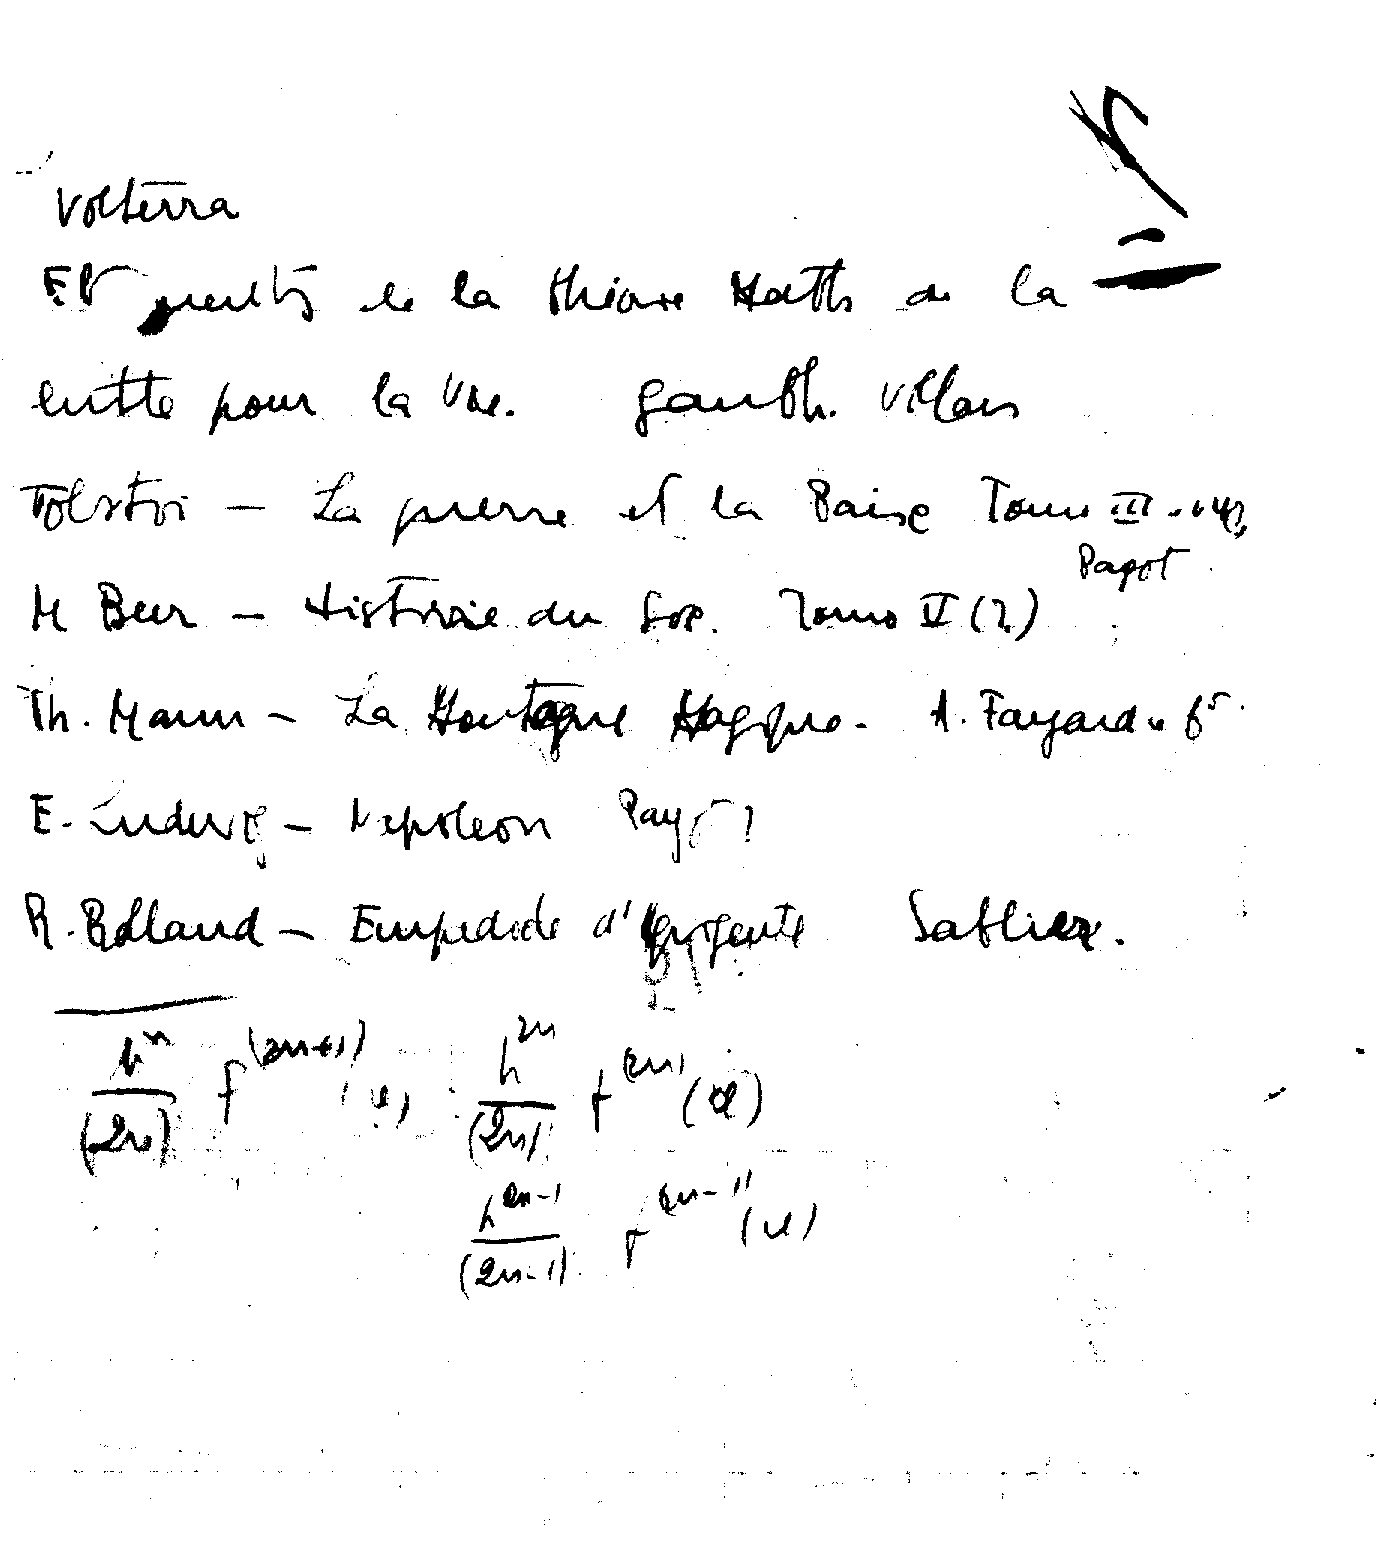 Volterra
de la théorie Math de la
lutte pour la vie. Gauth. Villars
Tolstoi – La guerre et la Paix Tome III
Payot
M Beer – Histoire du Soc. Tome II (?)
Th. Mann – La Montagne Magique. A. Fayard
E. Ludwig – Napoleon Payot ?
R. Rolland – Empedocle d'Agrigente Sablier.
h^n/(2n) f^(2n+1) h^2n/(2n) f^(2n) (x)
h^2n-1/(2n-1) f^(2n-1)